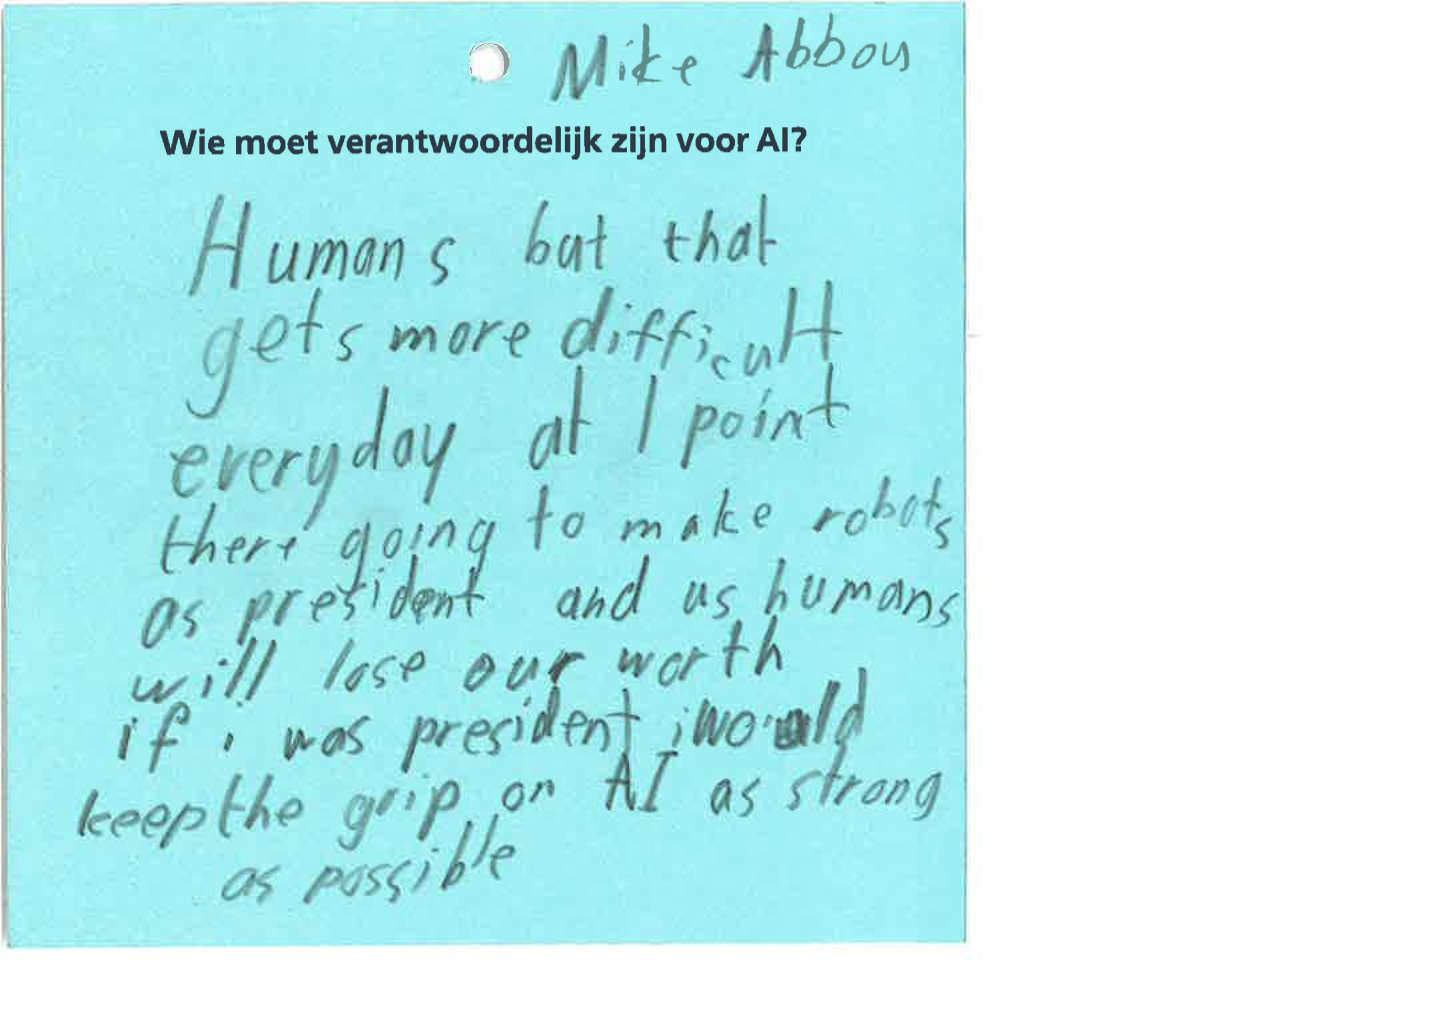 Mike Abbou
Wie moet verantwoordelijk zijn voor AI?
Humans but that
gets more difficult
everyday at 1 point
there going to make robots
as president and us humans
will lose our worth
if i was president i would
keep the grip on AI as strong
as possible